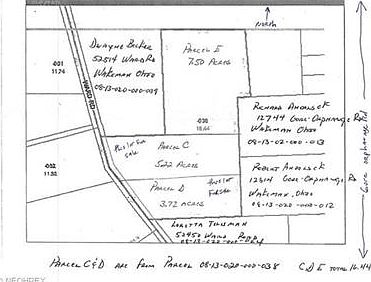 NORTH
Dwayne Becker
52514 Ward Rd
Wakeman Ohio
08-13-020-000-039
PARCEL E
7.50 Acres
-001
11.24
Ward Rd
-038
16.44
Richard Andrlsck
12744 Gore-Orphanage Rd
Wakeman Ohio
08-13-02-000-013
Gore Orphanage Rd
PARCEL C
5.22 Acres
-032
11.52
Robert Andrlsck
12814 Gore-Orphanage Rd
Wakeman, Ohio
08-13-020-000-012
PARCEL D
3.72 ACRES
Loretta Tillsman
52450 Ward Road
08-13-020-000-
PARCEL C&D are from Parcel 08-13-020-000-038 C D E TOTAL 16.44
© NEOHREX